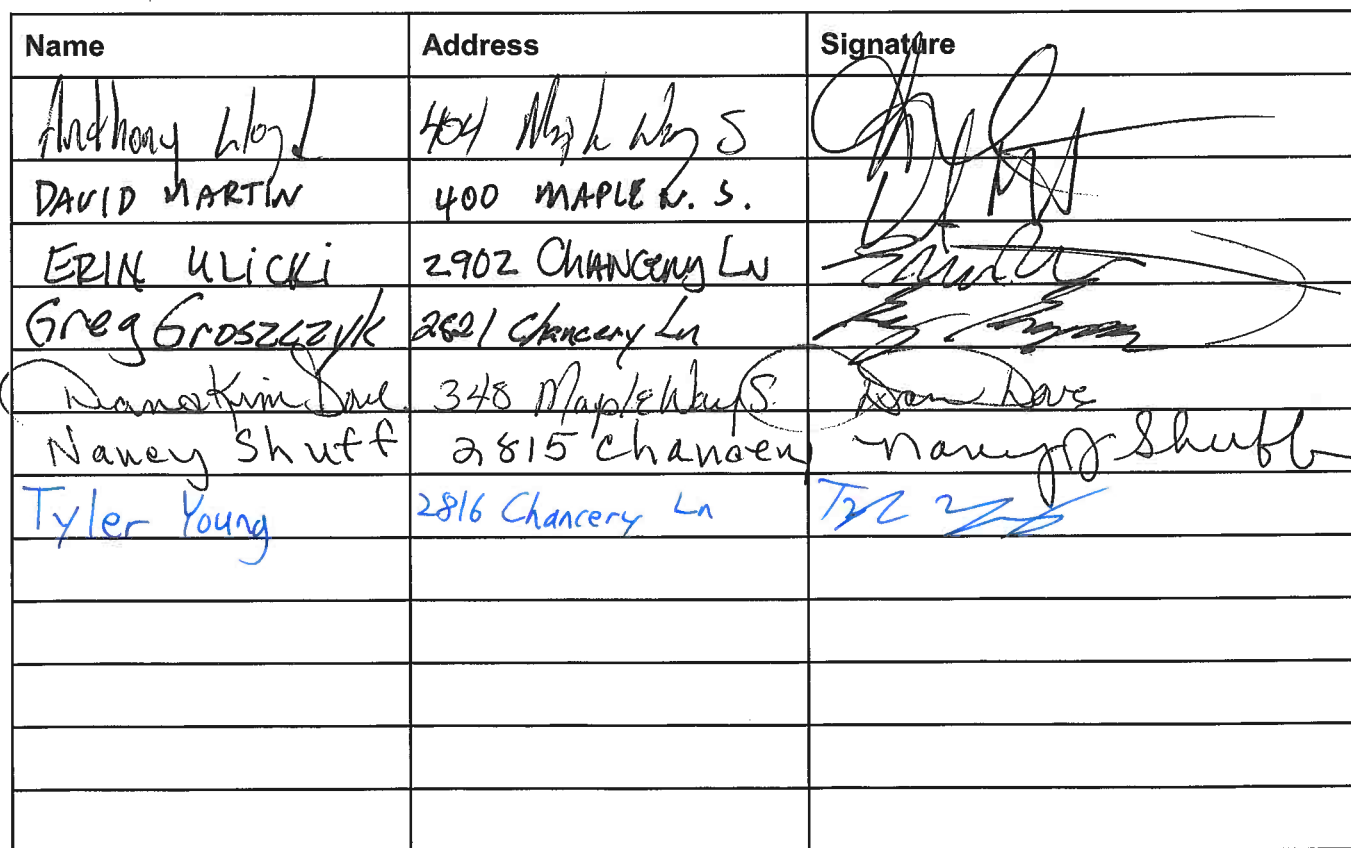 Name Address Signature
Anthony Lloyd 404 Maple Way S
DAVID MARTIN 400 MAPLE W. S.
ERIN ULICKI 2902 CHANCERY LN
Greg Groszczyk 2821 Chancery Ln
Diana Kim Dove 348 Maple Way S. Dove
Nancy Shuff 2815 Chancery Nancy J Shuff
Tyler Young 2816 Chancery Ln